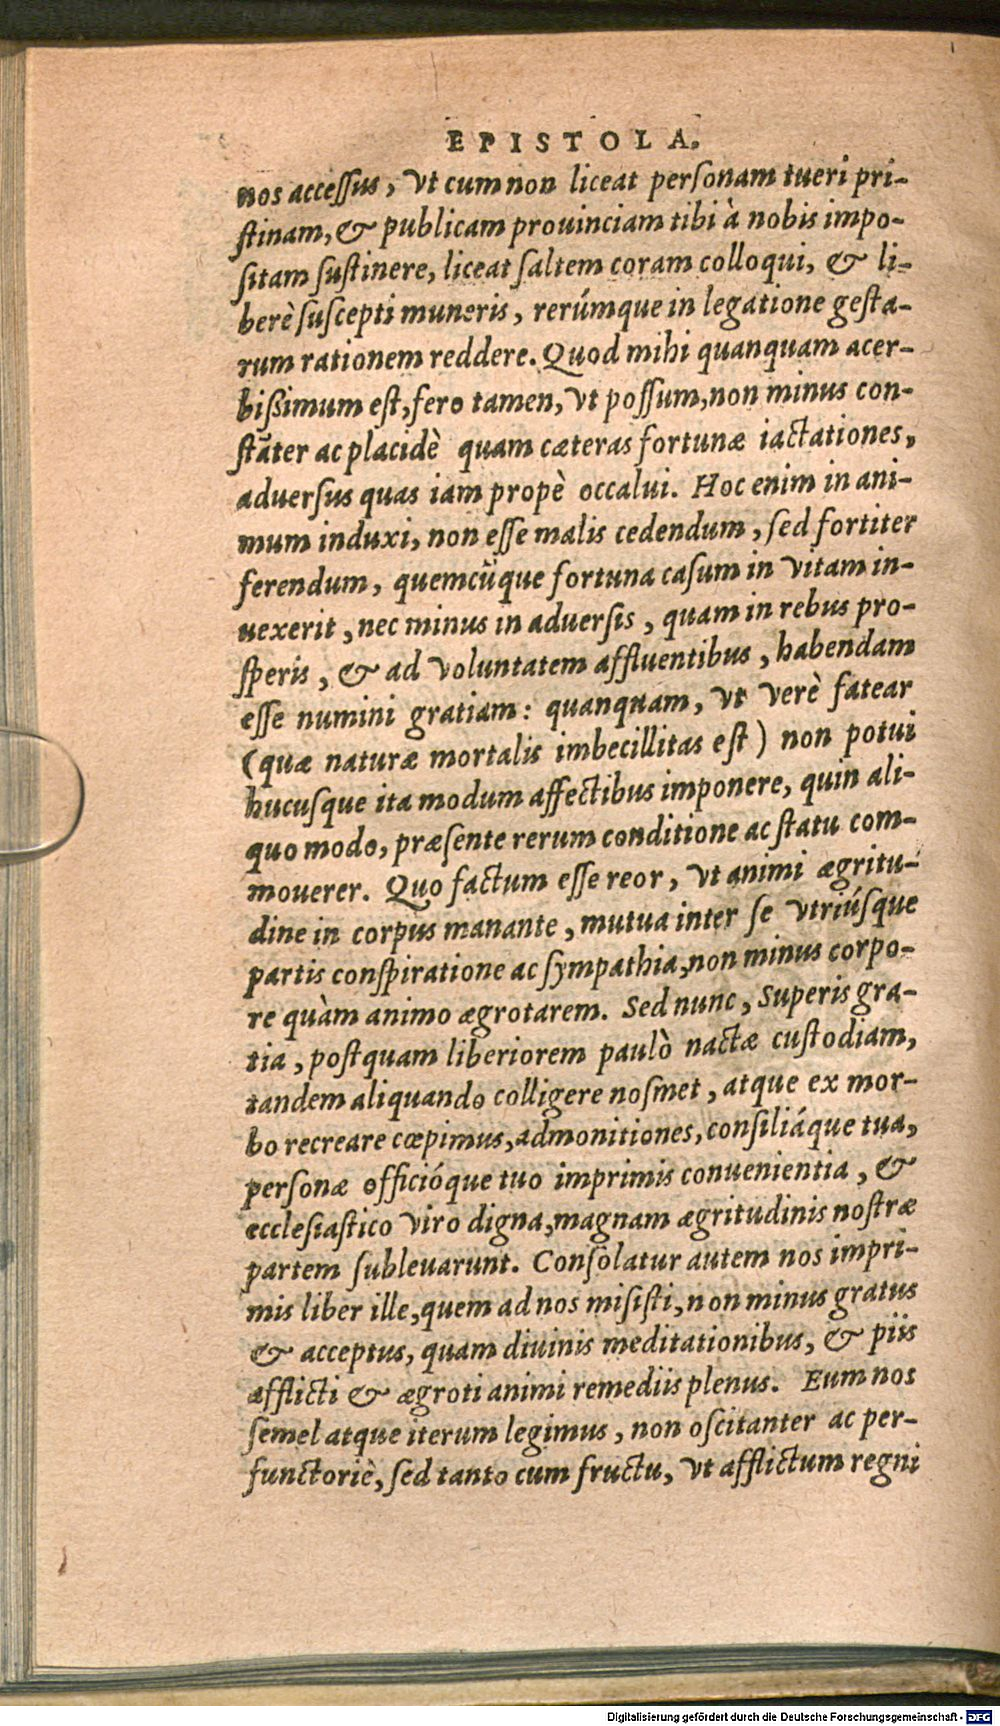 EPISTOLA.
nos accessus, vt cum non liceat personam tueri pri-
stinam, & publicam prouinciam tibi à nobis impo-
sitam sustinere, liceat saltem coram colloqui, & li-
berè suscepti muneris, rerúmque in legatione gesta-
rum rationem reddere. Quod mihi quanquam acer-
bißimum est, fero tamen, vt possum, non minus con-
stãter ac placidè quam cæteras fortunæ iactationes,
aduersus quas iam propè occalui. Hoc enim in ani-
mum induxi, non esse malis cedendum, sed fortiter
ferendum, quemcũque fortuna casum in vitam in-
uexerit, nec minus in aduersis, quam in rebus pro-
speris, & ad voluntatem affluentibus, habendam
esse numini gratiam: quanquam, vt verè fatear
(quæ naturæ mortalis imbecillitas est) non potui
hucusque ita modum affectibus imponere, quin ali-
quo modo, præsente rerum conditione ac statu com-
mouerer. Quo factum esse reor, vt animi ægritu-
dine in corpus manante, mutua inter se vtriúsque
partis conspiratione ac sympathia, non minus corpo-
re quàm animo ægrotarem. Sed nunc, Superis gra-
tia, postquam liberiorem paulò nactæ custodiam,
tandem aliquando colligere nosmet, atque ex mor-
bo recreare cœpimus, admonitiones, consiliáque tua,
personæ offcióque tuo imprimis conuenientia, &
ecclesiastico viro digna, magnam ægritudinis nostræ
partem subleuarunt. Consolatur autem nos impri-
mis liber ille, quem ad nos misisti, non minus gratus
& acceptus, quam diuinis meditationibus, & piis
afflicti & ægroti animi remediis plenus. Eum nos
semel atque iterum legimus, non oscitanter ac per-
functoriè, sed tanto cum fructu, vt afflictum regni
Digitalisierung gefördert durch die Deutsche Forschungsgemeinschaft - DFG